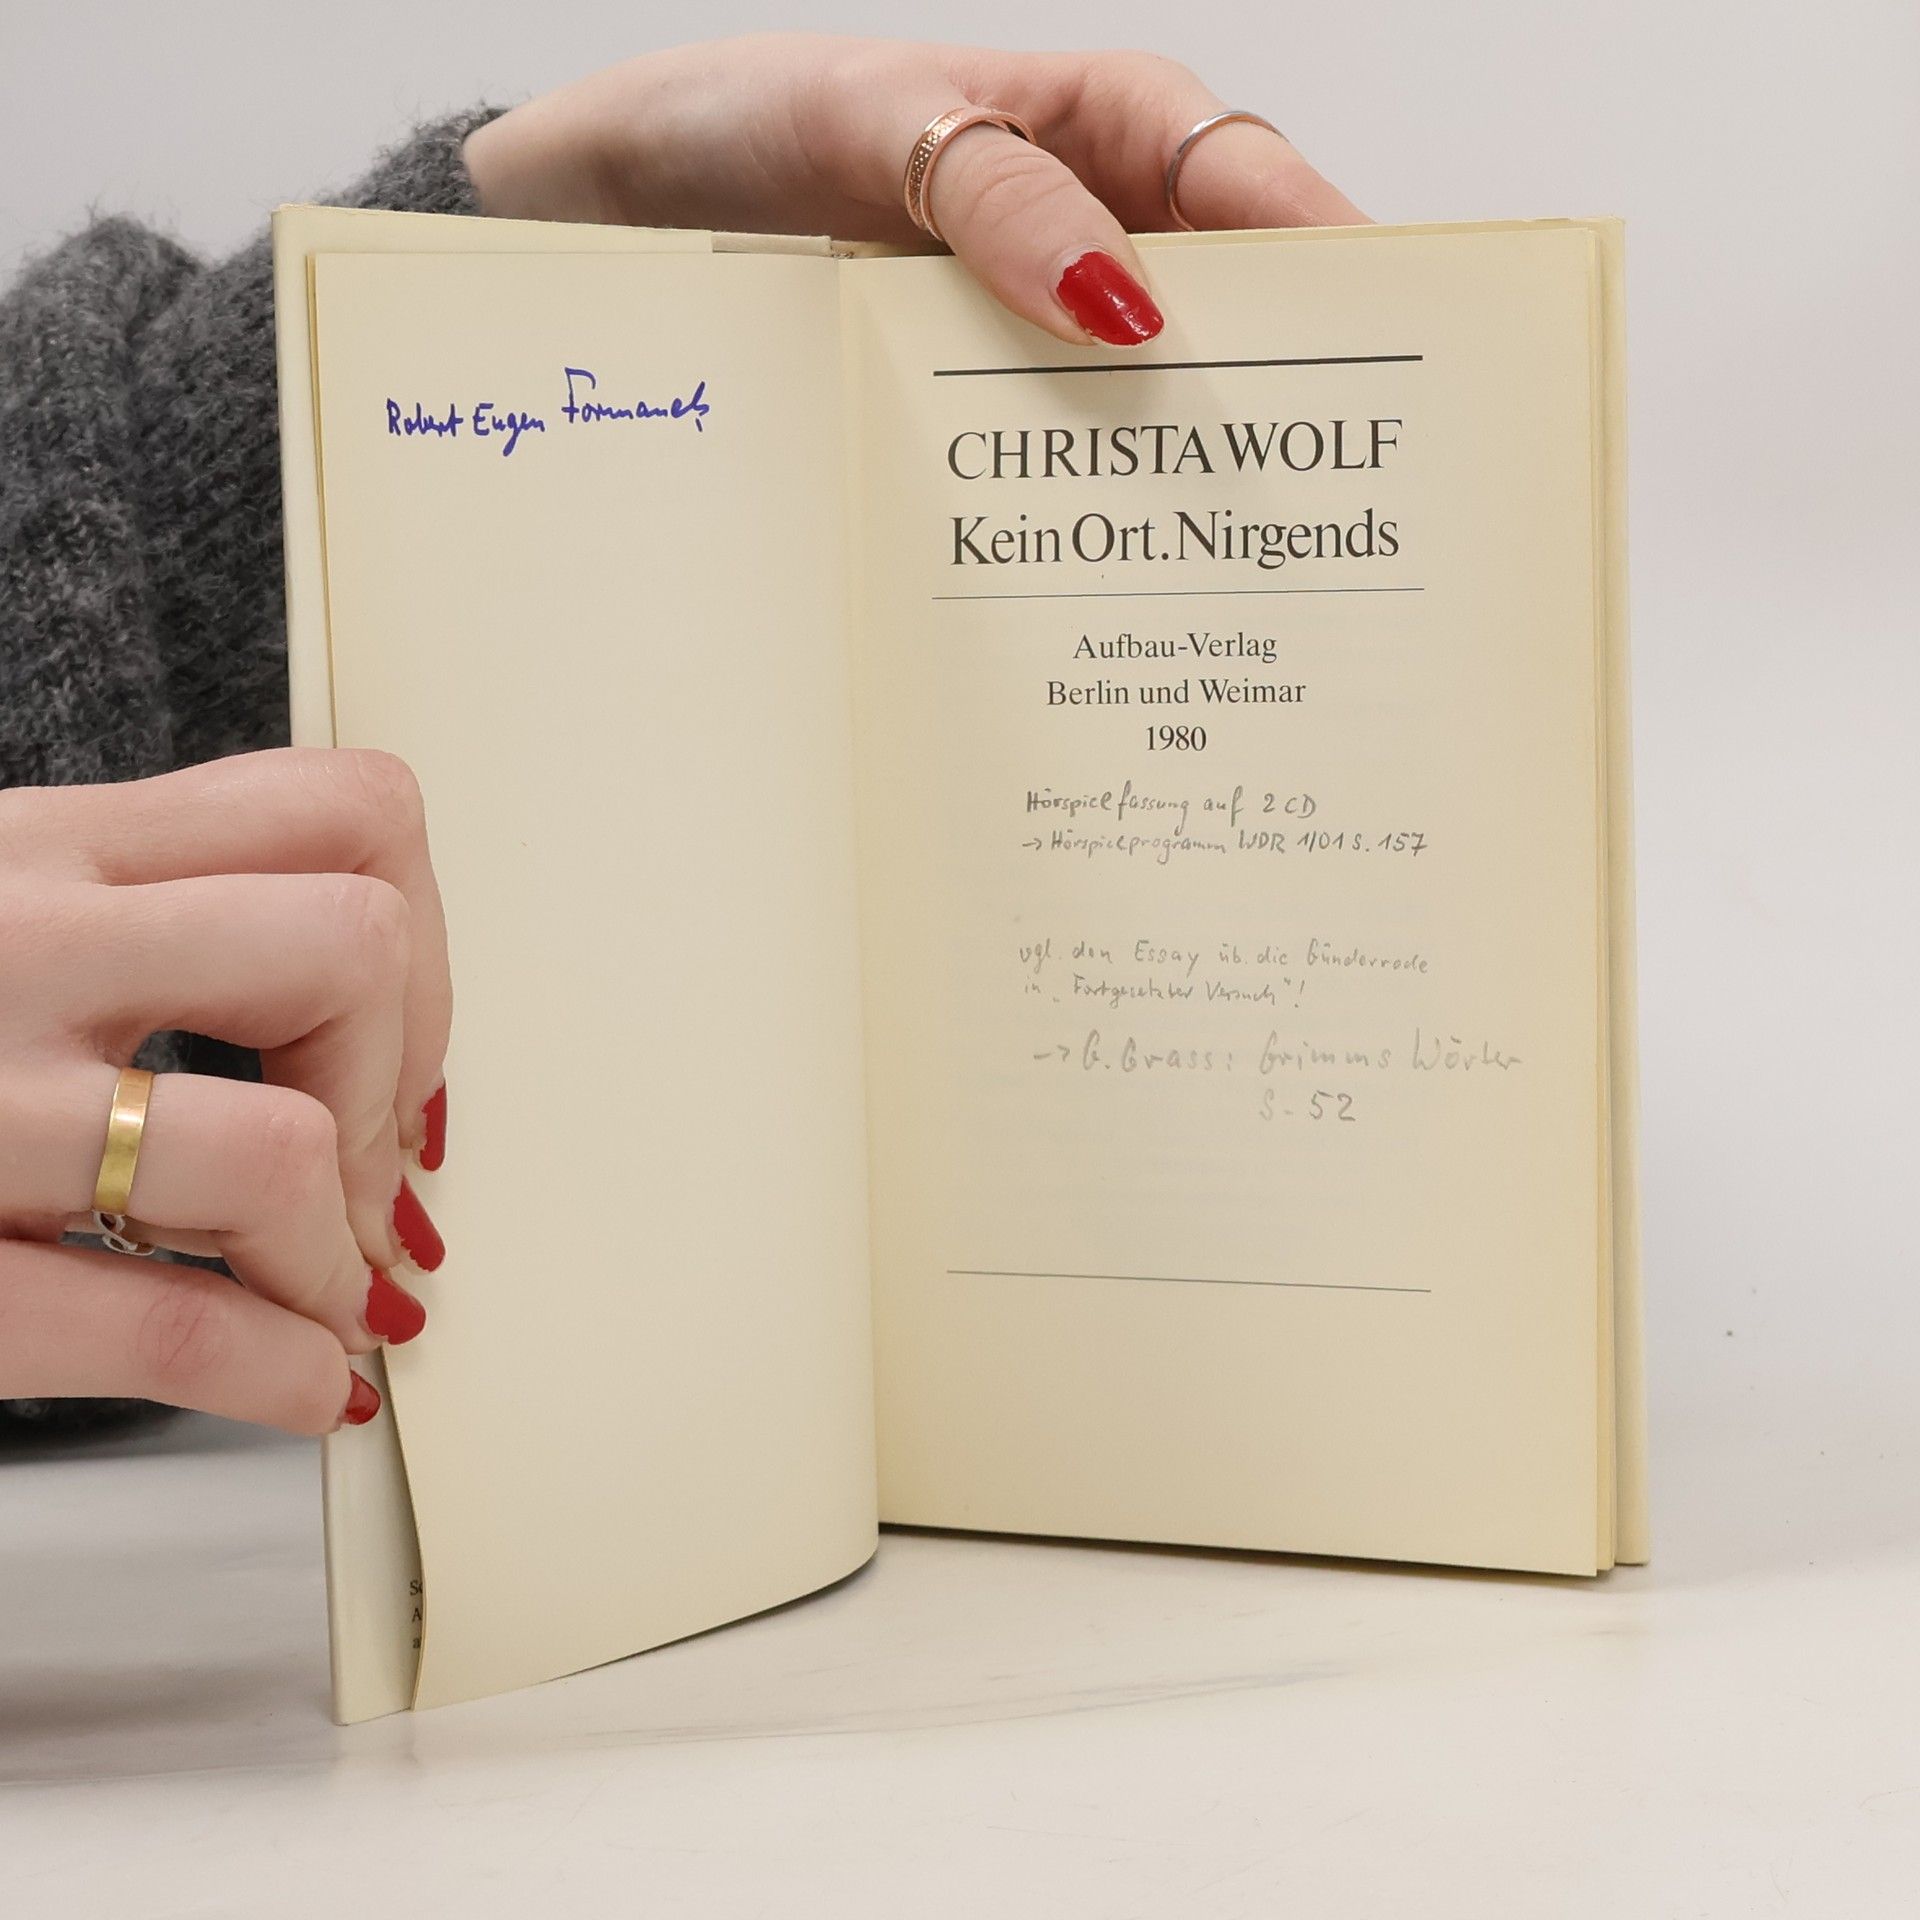 Robert Eugen Formanek
CHRISTA WOLF
Kein Ort. Nirgends
Aufbau-Verlag
Berlin und Weimar
1980
Hörspielfassung auf 2 CD
→ Hörspielprogramm WDR 1/01 S. 157
vgl. den Essay üb. die Günderrode
in „Fortgesetzter Versuch"!
→ G. Grass: Grimms Wörter
S. 52